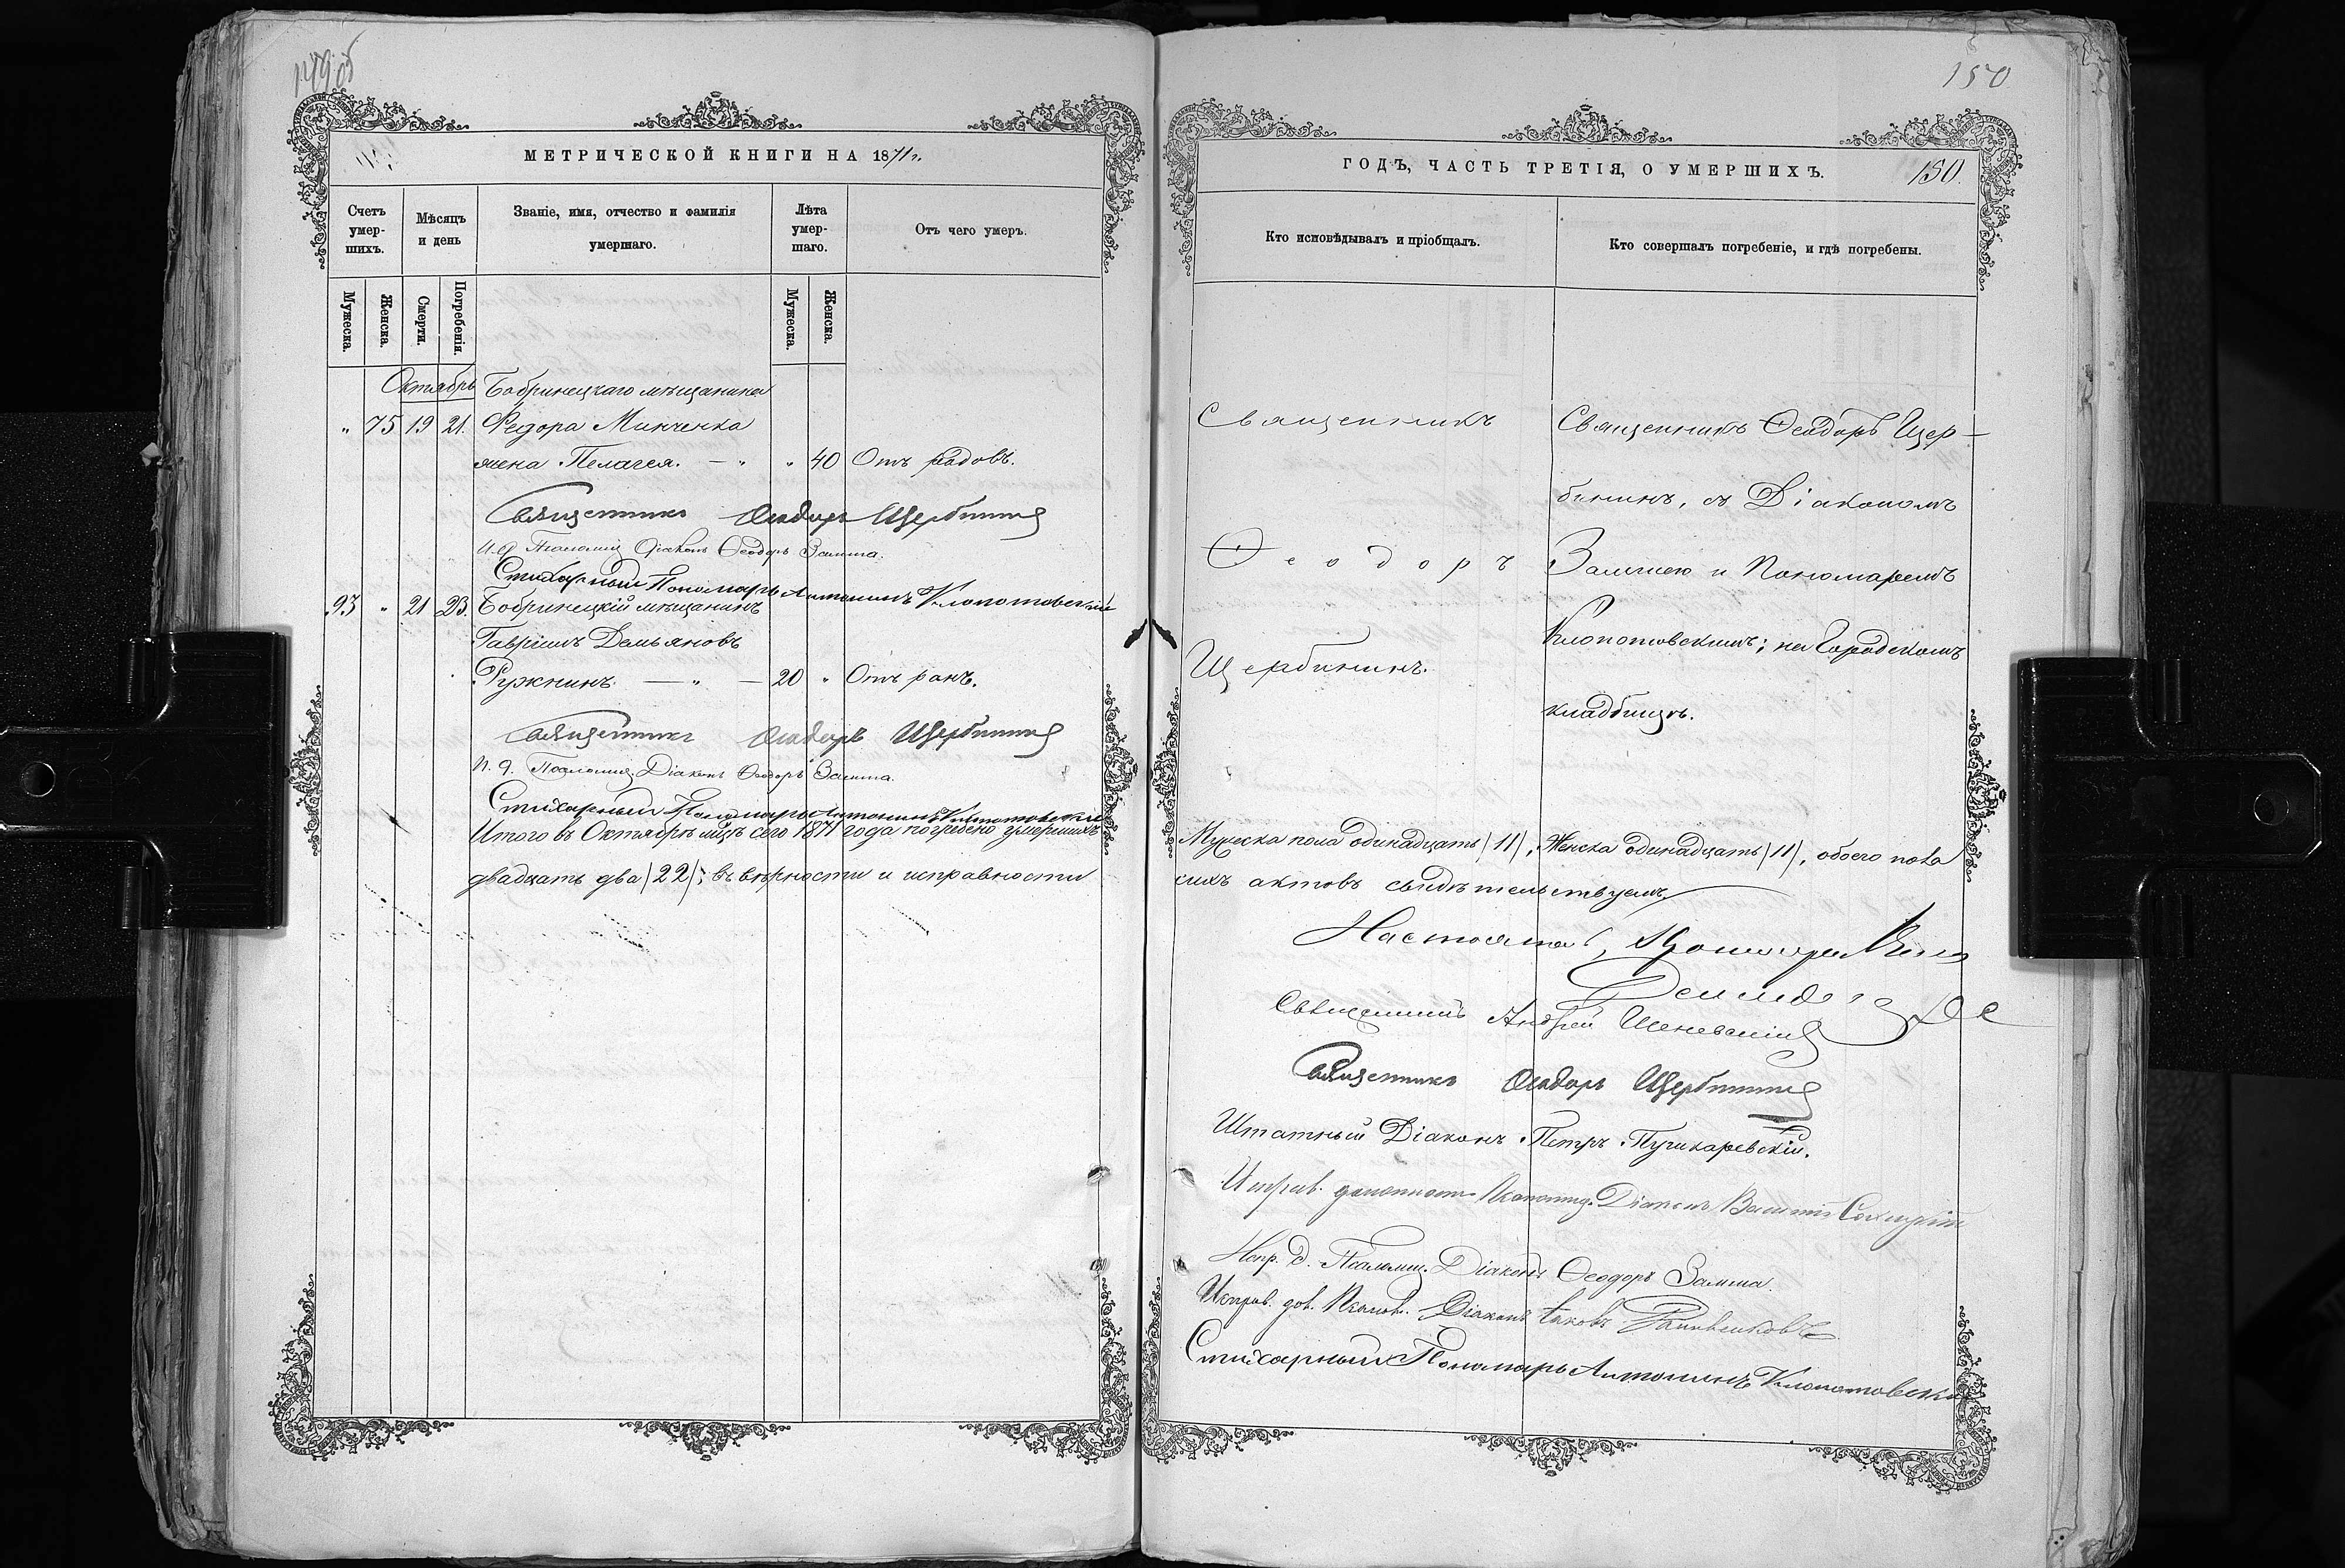 149об
МЕТРИЧЕСКОЙ КНИГИ НА 1871 г.
Счетъ умер-шихъ.
Мѣсяцъ и день
Званіе, имя, отчество и фамилія умершаго.
Лѣта умер-шаго.
Отъ чего умеръ.
Мужеска.
Женска.
Смерти.
Погребенія.
Мужеска.
Женска.
Октябрь Бобринецкаго мѣщанина
" 75 19 21. Федора Минченка
жена Пелагея. — " " 40 Отъ родовъ.
Священникъ Ѳеодоръ Щербининъ
И. д. Псаломщ. Діаконъ Ѳеодоръ Замша.
Стихарный Пономарь Антонинъ Клопотовскій
93 " 21 23. Бобринецкій мѣщанинъ
Гавріилъ Демьяновъ
Ружнинъ. — " — 20 " Отъ ранъ.
Священникъ Ѳеодоръ Щербининъ
И. д. Псаломщ. Діаконъ Ѳеодоръ Замша.
Стихарный Пономарь Антонинъ Клопотовскій
Итого въ Октябрѣ мцѣ сего 1871 года погребено умершихъ
двадцать два /22/; въ вѣрности и исправности
150
ГОДЪ, ЧАСТЬ ТРЕТІЯ, О УМЕРШИХЪ.
150.
Кто исповѣдывалъ и пріобщалъ.
Кто совершалъ погребеніе, и гдѣ погребены.
Священникъ
Ѳеодоръ
Щербининъ.
Священникъ Ѳеодоръ Щер-
бининъ, съ Діакономъ
Замшею и Пономаремъ
Клопотовскимъ; на Городскомъ
кладбищѣ.
Мужеска пола одинадцать /11/, Женска одинадцать /11/, обоего пола
сихъ актовъ свидѣтельствуемъ
Настоятель,
Священникъ Андрей
Священникъ Ѳеодоръ Щербининъ
Штатный Діаконъ Петръ Пушкаревскій.
Исправ. должность Псаломщ. Діаконъ
Испр. д. Псаломщ. Діаконъ Ѳеодоръ Замша.
Исправ. дол. Псалом. Діаконъ Іаковъ
Стихарный Пономарь Антонинъ Клопотовскій